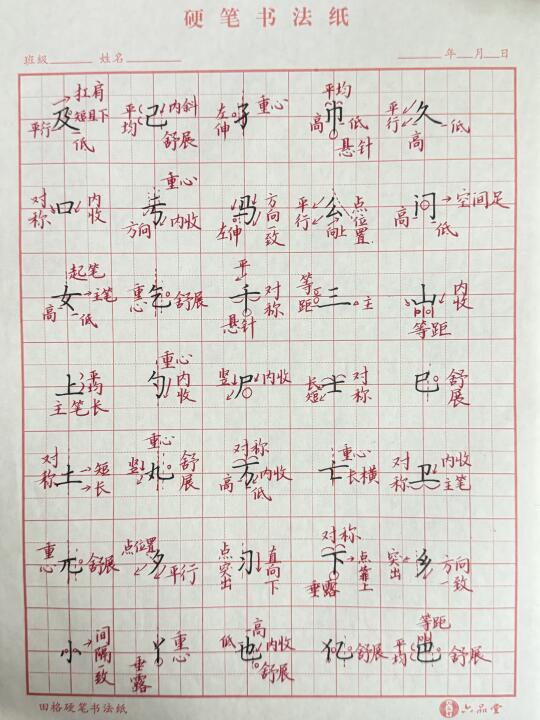 硬笔书法纸
班级 姓名 年 月 日
及 扛肩 短且下 平行 低
己 平均 内斜 舒展
子 重心 左伸
币 平均 高 低 悬针
久 平行 高 低
口 对称 内收
考 重心 方向 内收
马 左伸 方向一致
公 平行 向上 点位置
问 高 低 空间足
女 起笔 主笔 高 低
乞 重心 舒展
千 平 对称 悬针
三 等距 主
山 内收 等距
上 平均 主笔长
勺 重心 内收
尸 竖 内收
士 长短 对称
巴 舒展
土 对称 短 长
丸 重心 竖 舒展
方 对称 高 内收 低
亡 重心 长横
卫 对称 内收 主笔
元 重心 舒展
多 点位置 平行
习 点突出 直向下
下 对称 点靠上 垂露
乡 突出 方向一致
小 间隔一致
丫 重心 垂露
也 低 高 内收 舒展
犯 舒展
邑 等距 平均 舒展
田格硬笔书法纸 六品堂